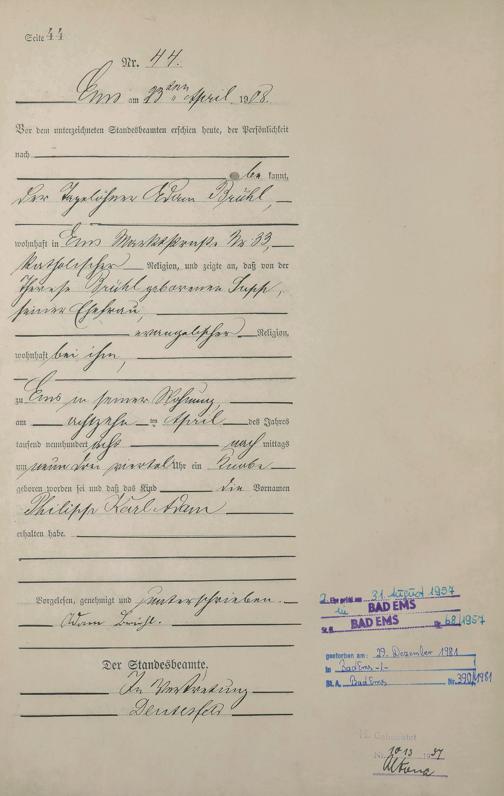 Seite 44
Nr. 44.
Ems am 23ten April 1908.
Vor dem unterzeichneten Standesbeamten erschien heute, der Persönlichkeit
nach
be kannt,
der Tagelöhner Adam Brühl,
wohnhaft in Ems Marktstraße Nr 33,
katholischer Religion, und zeigte an, daß von der
Therese Brühl geborenen
seiner Ehefrau,
evangelischer Religion,
wohnhaft bei ihm,
zu Ems in seiner Wohnung,
am achtzehn ten April des Jahres
tausend neunhundert acht nach mittags
um neun drei viertel Uhr ein Knabe
geboren worden sei und daß das Kind die Vornamen
Philipp Karl Adam
erhalten habe.
Vorgelesen, genehmigt und unterschrieben.
Adam Brühl.
Der Standesbeamte.
In Vertretung
2. Ehe geschl. am 31. August 1957
in BAD EMS
St. A. BAD EMS Nr. 68/1957
gestorben am: 29. Dezember 1981
in Bad Ems -/-
St. A. Bad Ems Nr. 390/1981
Nr. 1013 1937
Altona